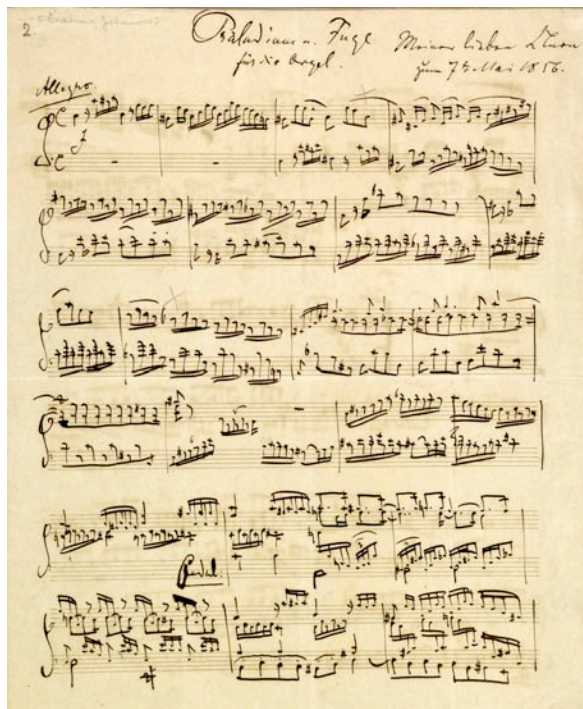 2
Präludium u. Fuge
für die Orgel.
Meiner lieben Clara
zum 7t Mai 1856.
Allegro
f
Pedal.